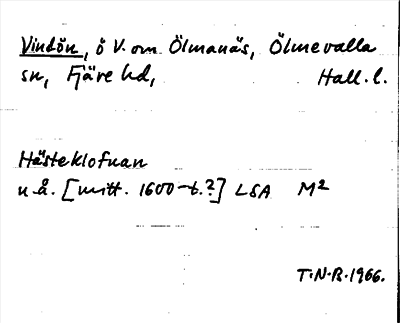 Vindön, ö V. om Ölmanäs, Ölmevalla
sn, Fjäre hd, Hall. l.
Hästeklofuan
u.å. [mitt. 1600-t.?] LSA M²
T.N.R. 1966.